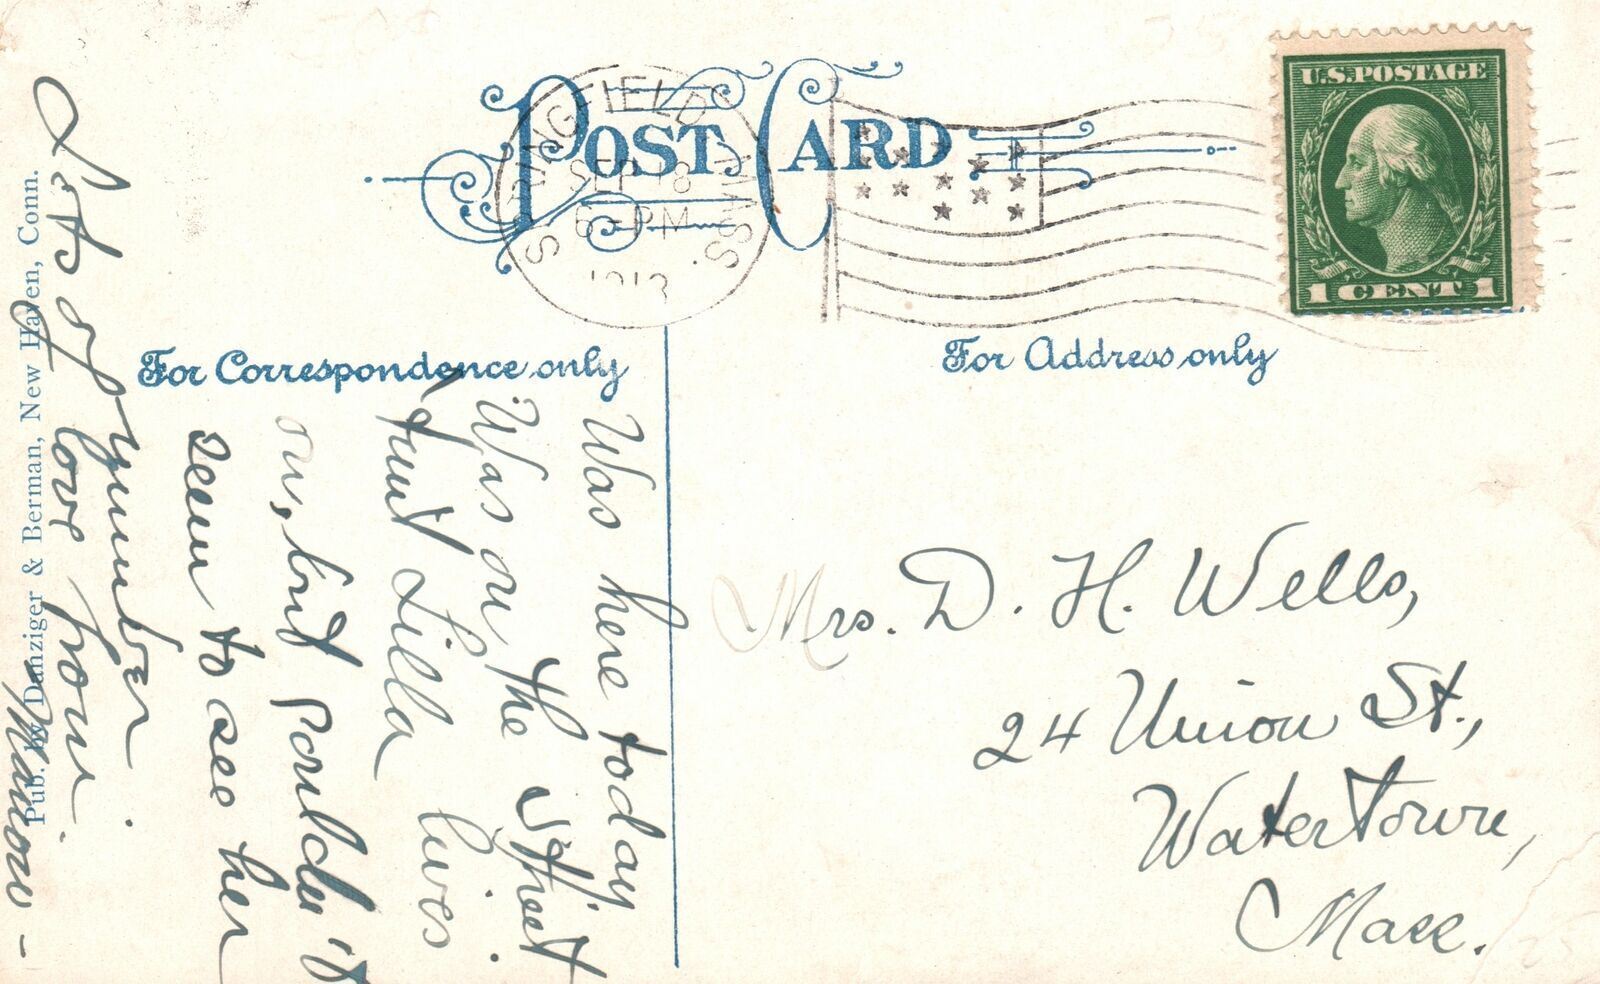 POST CARD
SPRINGFIELD MASS.
SEP 18
6-PM
1913
U.S. POSTAGE
1 CENT 1
For Correspondence only
For Address only
Was here today
Was on the street
Aunt Lilla lives
on, but couldn't
seem to see her
number
Lots of
love from
Marion -
Mrs. D. H. Wells,
24 Union St.,
Watertown,
Mass.
Pub. by Danziger & Berman, New Haven, Conn.